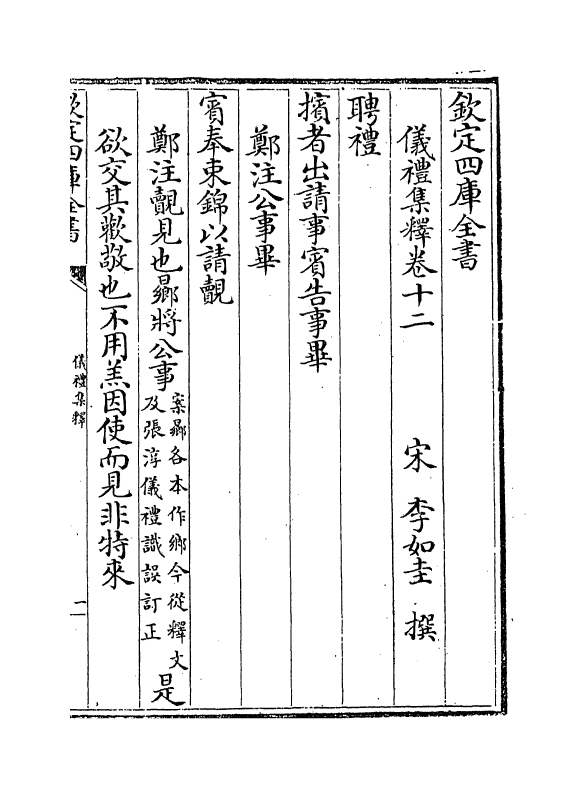 欽定四庫全書
儀禮集釋卷十二　宋　李如圭　撰
聘禮
擯者出請事賓告事畢
鄭注公事畢
賓奉束錦以請覿
鄭注覿見也曏將公事案曏各本作鄉今從釋文及張淳儀禮識誤訂正是
欲交其歡敬也不用羔因使而見非特來
欽定四庫全書
儀禮集釋
一